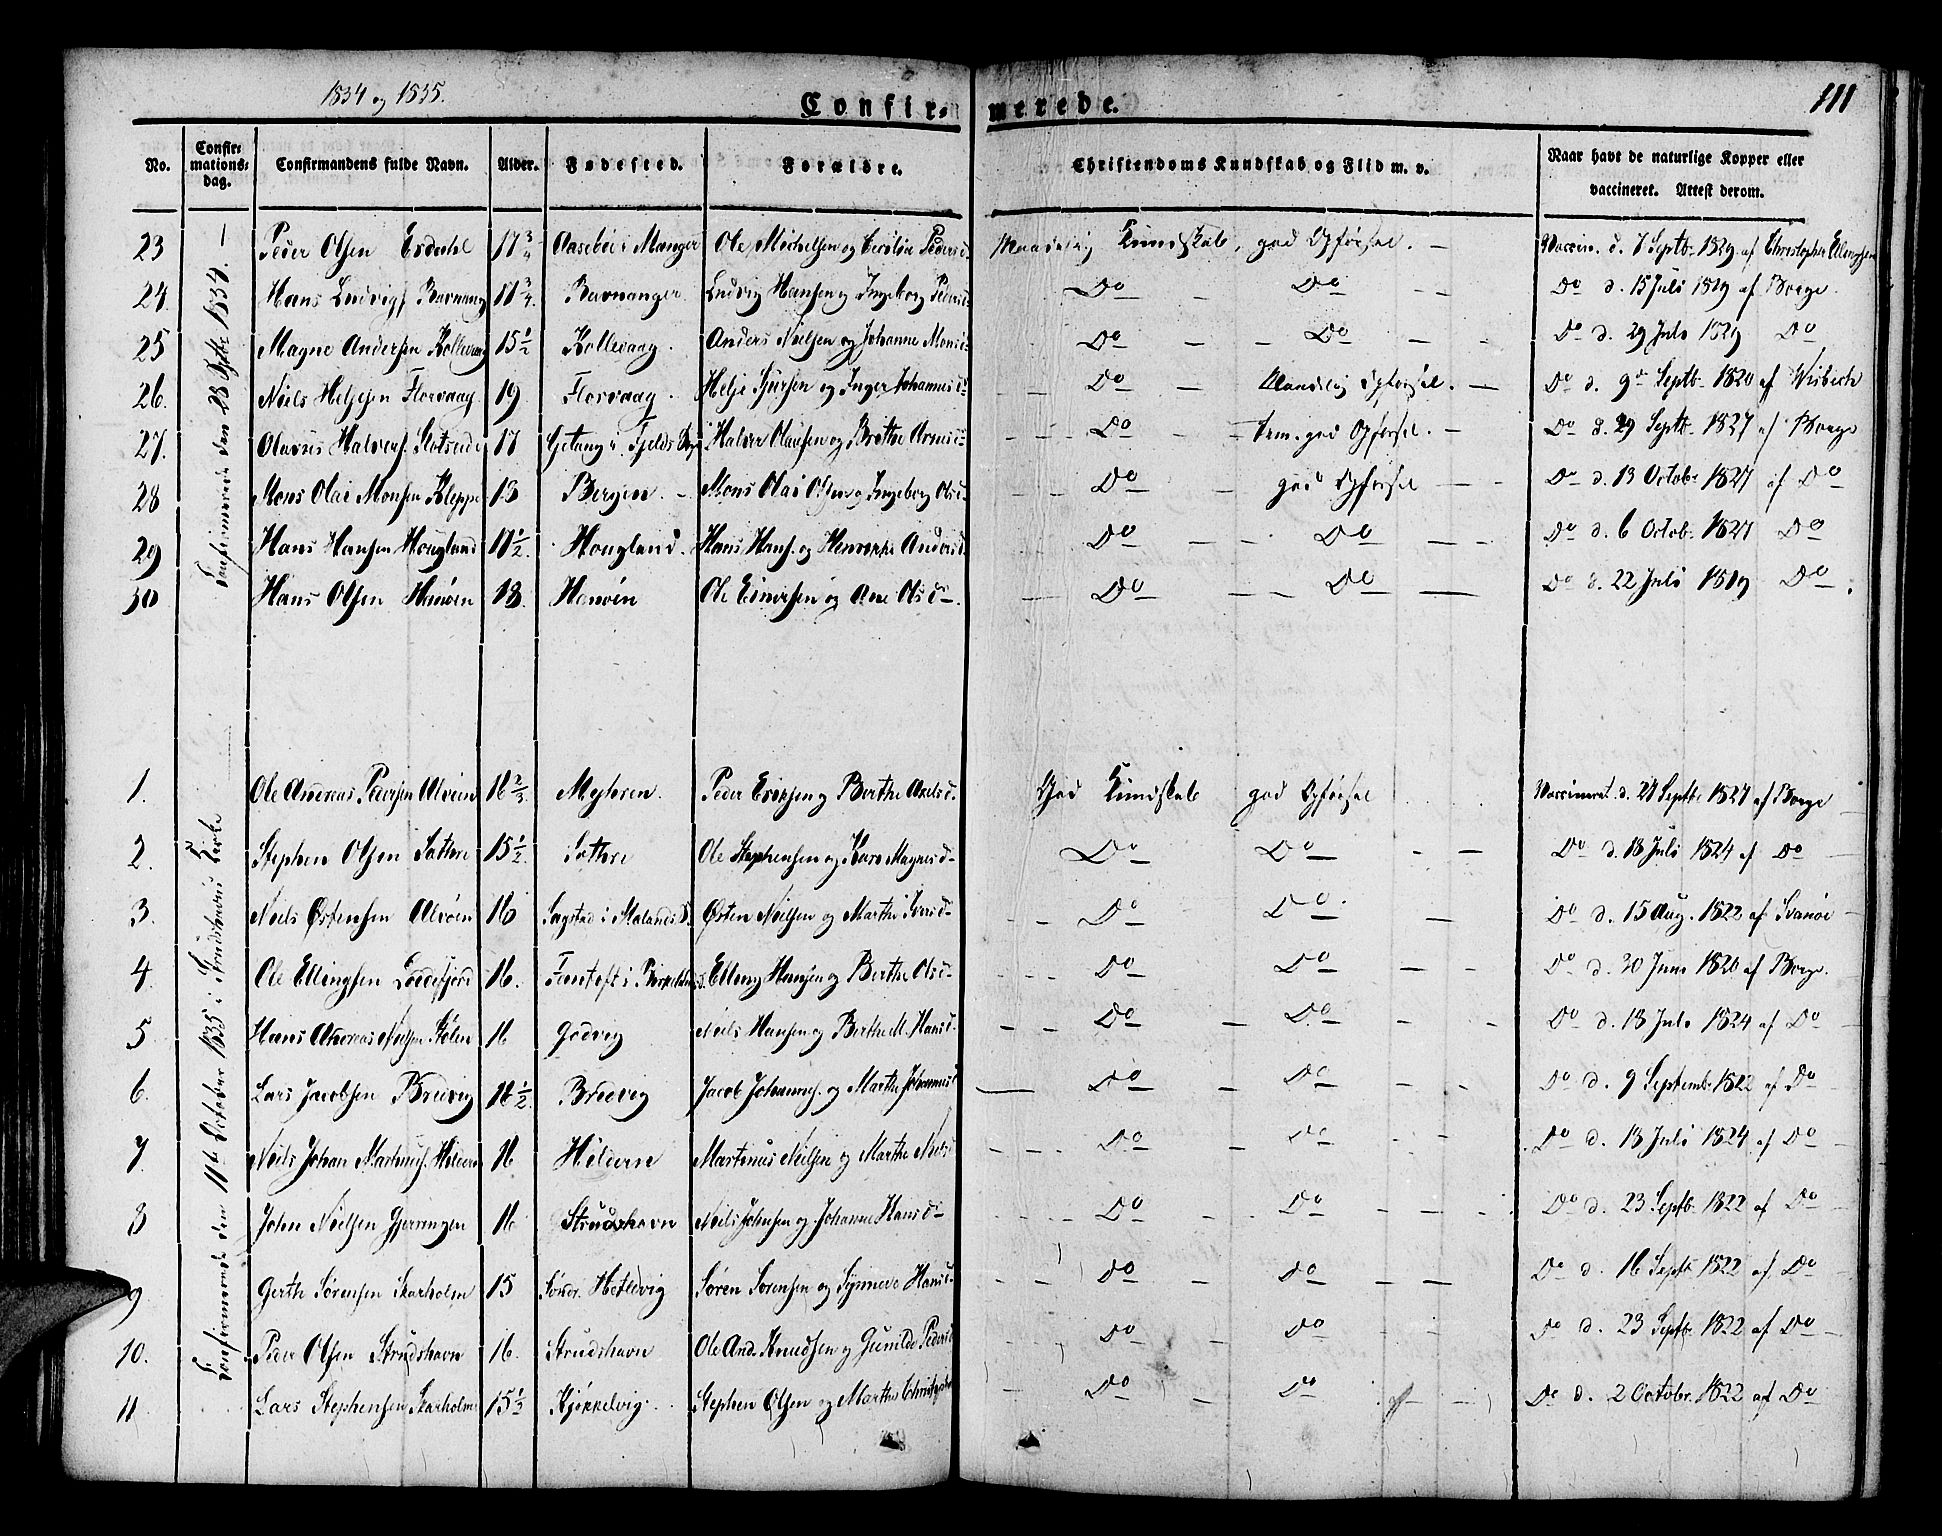 1834 og 1835.
Confirmerede.
111
No. Confirmationsdag. Confirmandens fulde Navn. Alder. Fødested. Forældre. Christendoms Kundskab og Flid m. v. Naar havt de naturlige Kopper eller vaccineret. Attest derom.
Confirmerede den 28 Septbr 1834.
23 Peder Olsen 17 3/4 i Manger Ole Michelsen og Cecilia Pedersd. Maadelig Kundskab, god Opførsel. — Vaccin. d. 7 Septb. 1829 af Christopher
24 Hans Ludvigs Ravnang 3/4 Ravnanger. Ludvig Hansen og Ingeborg Pedersd. Do Do — Do d. 15 Juli 1829 af Borge.
25 Magne Andersen Kollevaag 15 1/2 Kollevaag. Anders Nielsen og Johanne Monsd. Do — Do — Do d. 29 Juli 1829 Do
26. Niels Helgesen Florvaag. 19 Florvaag. Helje Sjursen og Inger Johannesd. Do — Maadelig Opførsel. — Do d. 9de Septb. 1820 af Wisbech
27. Olavus Halvors. 17 i Fjelds Halvor Olausen og Brithe Do — god Opførsel. — Do d. 29 Septb. 1827 af Borge
28 Mons Olai Monsen Kleppe 18 Bergen. — Mons Olai Olsen og Ingeborg Olsd. Do — god Opførsel — Do d. 13 Octobr 1827 af Do
29 Hans Hansen Hougland 17 1/2. Hougland. Hans Hans. og Andersd. Do — Do — Do d. 6 Octob. 1827 Do
30 Hans Olsen Hanøen 18. Hanøen Ole og Ane Olsd. Do — Do — Do d. 22 Juli 1819 Do
Confirmerede den 11te October 1835 i Strudshavns Kirke
1. Ole Andreas Pedersen Alvøen 16 2/3 Peder og Berthe Axelsd. God Kundskab god Opførsel Vaccineret d. Septbr 1827 af Borge
2. Stephen Olsen Sattre 15 1/2. Sattre Ole Stephensen og Kari Magnesd. Do Do — Do d. 18 Juli 1824 af Do
3. Niels Østensen Alvøen 16 i Østen Nielsen og Marthe Iversd. Do Do — Do d. 15 Aug. 1822 af Svanøe
4. Ole Ellingsen 16. i Elling Hansen og Berthe Olsd. Do Do — Do d. 30 Juni 1820 af Borge.
5 Hans Andreas Nielsen 16 Godvig Niels Hansen og Berthe M. Hansd. Do — Do — Do d. 13 Juli 1824 af Do
6. Lars Jacobsen Bredvig 16 1/2. Bredvig Jacob Johannes. og Marthe Johannesd. Do Do — Do d. 9 Septembr 1822 af Do
7. Niels Johan Martinus. Hilderen 16 Hilderen Martinus Nielsen og Marthe Nielsd. Do — Do — Do d. 13 Juli 1824 af Do
8 John Nielsen 16 Strudshavn Niels Johnsen og Johanne Hansd. Do — Do — Do d. 23 Septb. 1822 af Do
9 Gerth Sørensen Skarholm 15 Søndr. Hetlevig Søren Sørensen og Synneve Hansd. Do — Do — Do d. 16 Septb 1822 af Do
10. Peder Olsen Strudshavn 16. Strudshavn Ole And. Knudsen og Gunilde Pedersd. Do Do — Do d. 23 Septb. 1822 af Do
11 Lars Stephensen Skarholm 15 1/2 Kjøkkelvig. Stephen Olsen og Marthe Do — Do — Do d. 2 Octobr. 1822 af Do